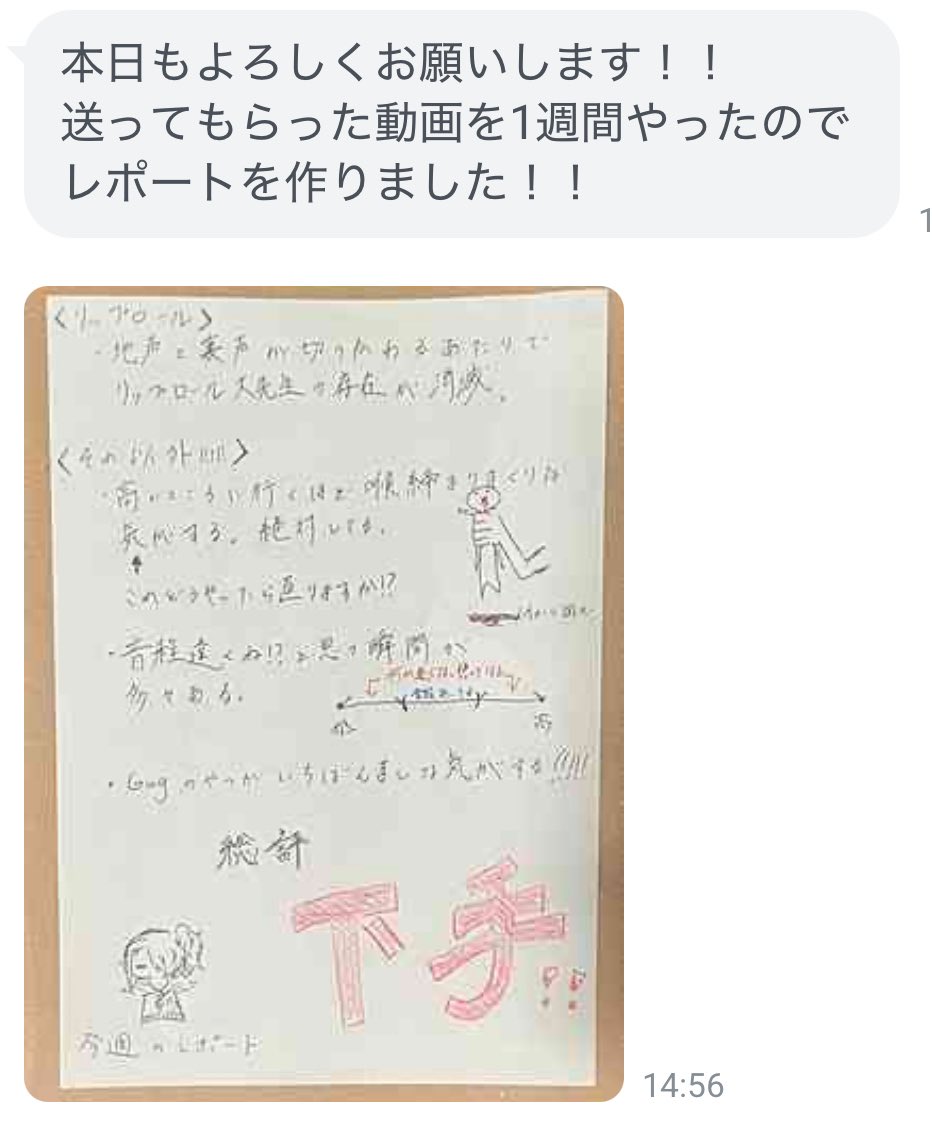 本日もよろしくお願いします！！
送ってもらった動画を1週間やったので
レポートを作りました！！
1
〈リップロール〉
・地声と裏声が切りかわるあたりで
リップロール大先生の存在が消滅。
〈それ以外〉
・高いところに行くほど喉締まりまくりな
気がする。絶対してる。
↑
このどうやったら直りますか!?
・音程違くね!?と思う瞬間が
多々ある。
・Gugのやつがいちばんましな気がする!!!!!
総評
下手!!
今週のレポート
14:56